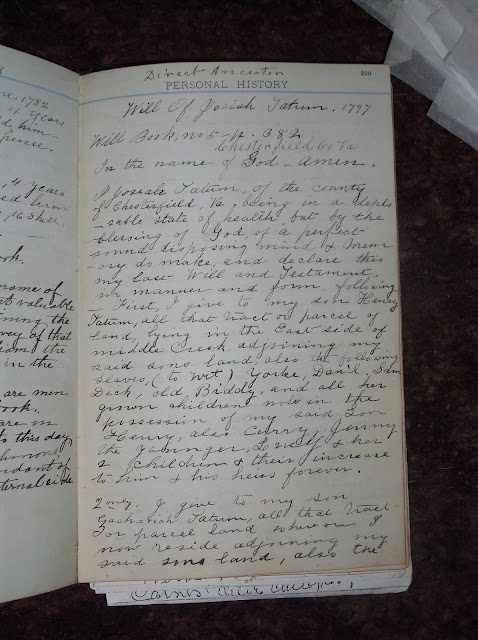 re, 1782
4 years
ed him
pence.
4 years
ed him
16 Shill
ook.
name of
st valuable
ining the
vey of that
liam the
in the
are men
Book.
are in
to this day
ndant of
ternal side
Direct Ancestor
PERSONAL HISTORY
Will Of Josiah Tatum. 1797
Will Book, no 5 - p. 382
Chesterfield Co Va
In the name of God - Amen.
I Josiah Tatum, of the county
of Chesterfield, Va. being in a deplo
-sable state of health but by the
blessing of God, of a perfect
sound disposing mind & Mem
-ory do make and declare this
my last Will and Testament,
in manner and form following
First, I give to my son Henry
Tatum, all that tract or parcel of
land, lying in the East side of
middle Creek adjoining my
said sons land also the following
slaves, (to wit) Yorke, Dan'l, Sam
Dick, old Biddy, and all her
grown children now in the
possession of my said Son
Henry, also Curry, Jenny
the Younger, & her
2 children & their increase
to him & his heirs forever.
2 only, I give to my son
Zachariah Tatum, all that tract
or parcel land whereon I
now reside adjoining my
said sons land, also the